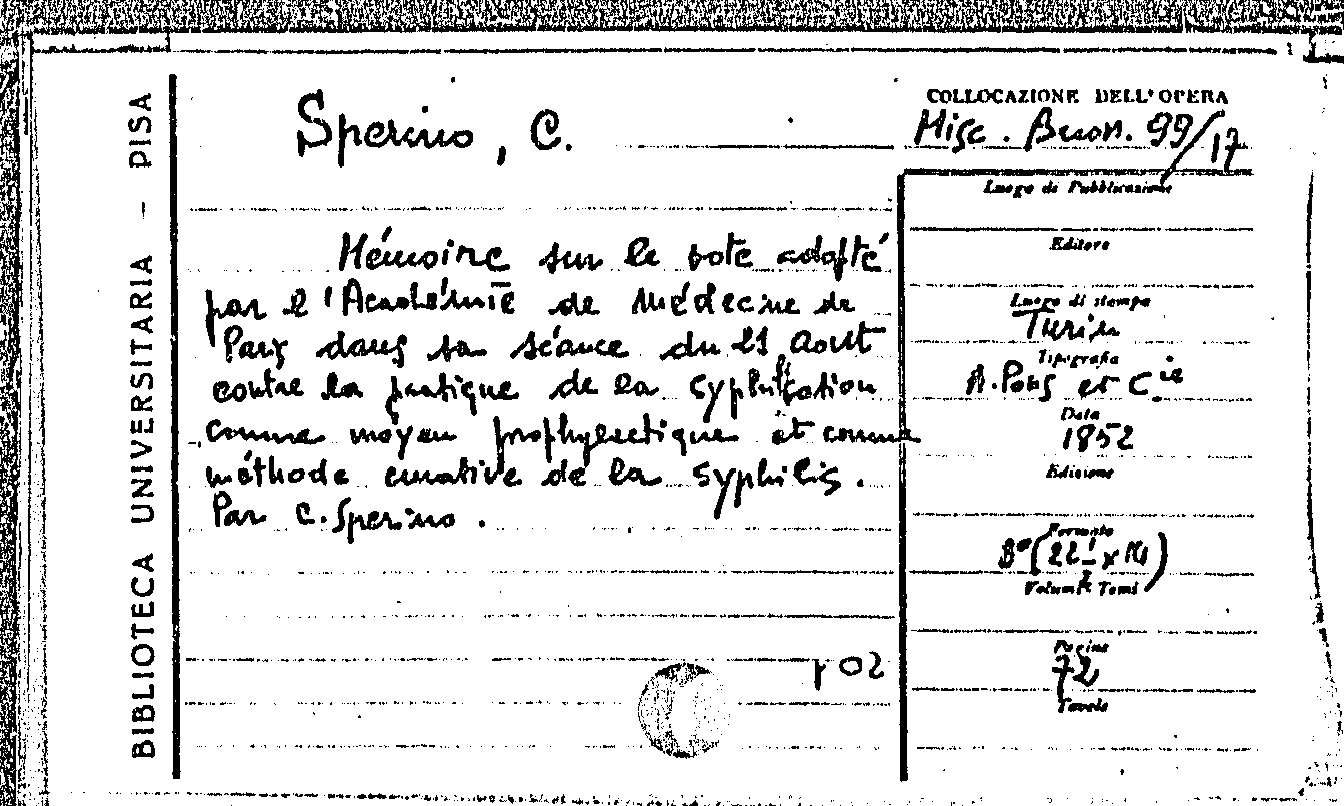 BIBLIOTECA UNIVERSITARIA – PISA
Sperino, C.
Mémoire sur le vote adopté
par l'Académie de Médecine de
Paris dans sa séance du 21 Aout
contre la pratique de la syphilisation
comme moyen prophylectique et comme
méthode curative de la syphilis.
Par C. Sperino.
COLLOCAZIONE DELL'OPERA
Misc. Buon. 99/17
Luogo di Pubblicazione
Editore
Luogo di stampa
Turin
Tipografia
A. Pons et Cie
Data
1852
Edizione
Formato
8° (22 1/2 x 14)
Volumi Tomi
Pagine
72
Tavole